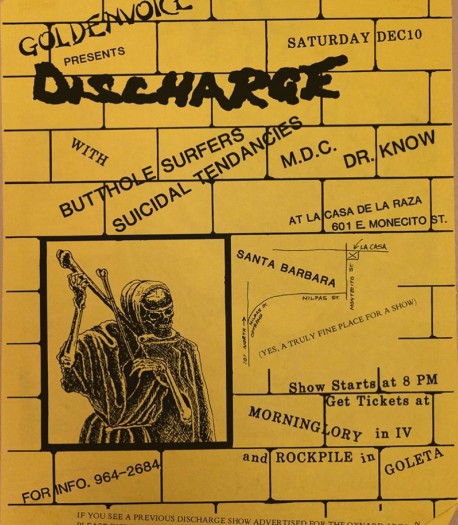 GOLDENVOICE
PRESENTS
SATURDAY DEC10
DISCHARGE
WITH
BUTTHOLE SURFERS
SUICIDAL TENDANCIES
M.D.C. DR. KNOW
AT LA CASA DE LA RAZA
601 E. MONECITO ST.
LA CASA
SANTA BARBARA
MILPAS ST
MONTECITO ST
101 NORTH
(YES, A TRULY FINE PLACE FOR A SHOW)
Show Starts at 8 PM
Get Tickets at
MORNINGLORY in IV
and ROCKPILE in GOLETA
FOR INFO. 964-2684
IF YOU SEE A PREVIOUS DISCHARGE SHOW ADVERTISED FOR THE